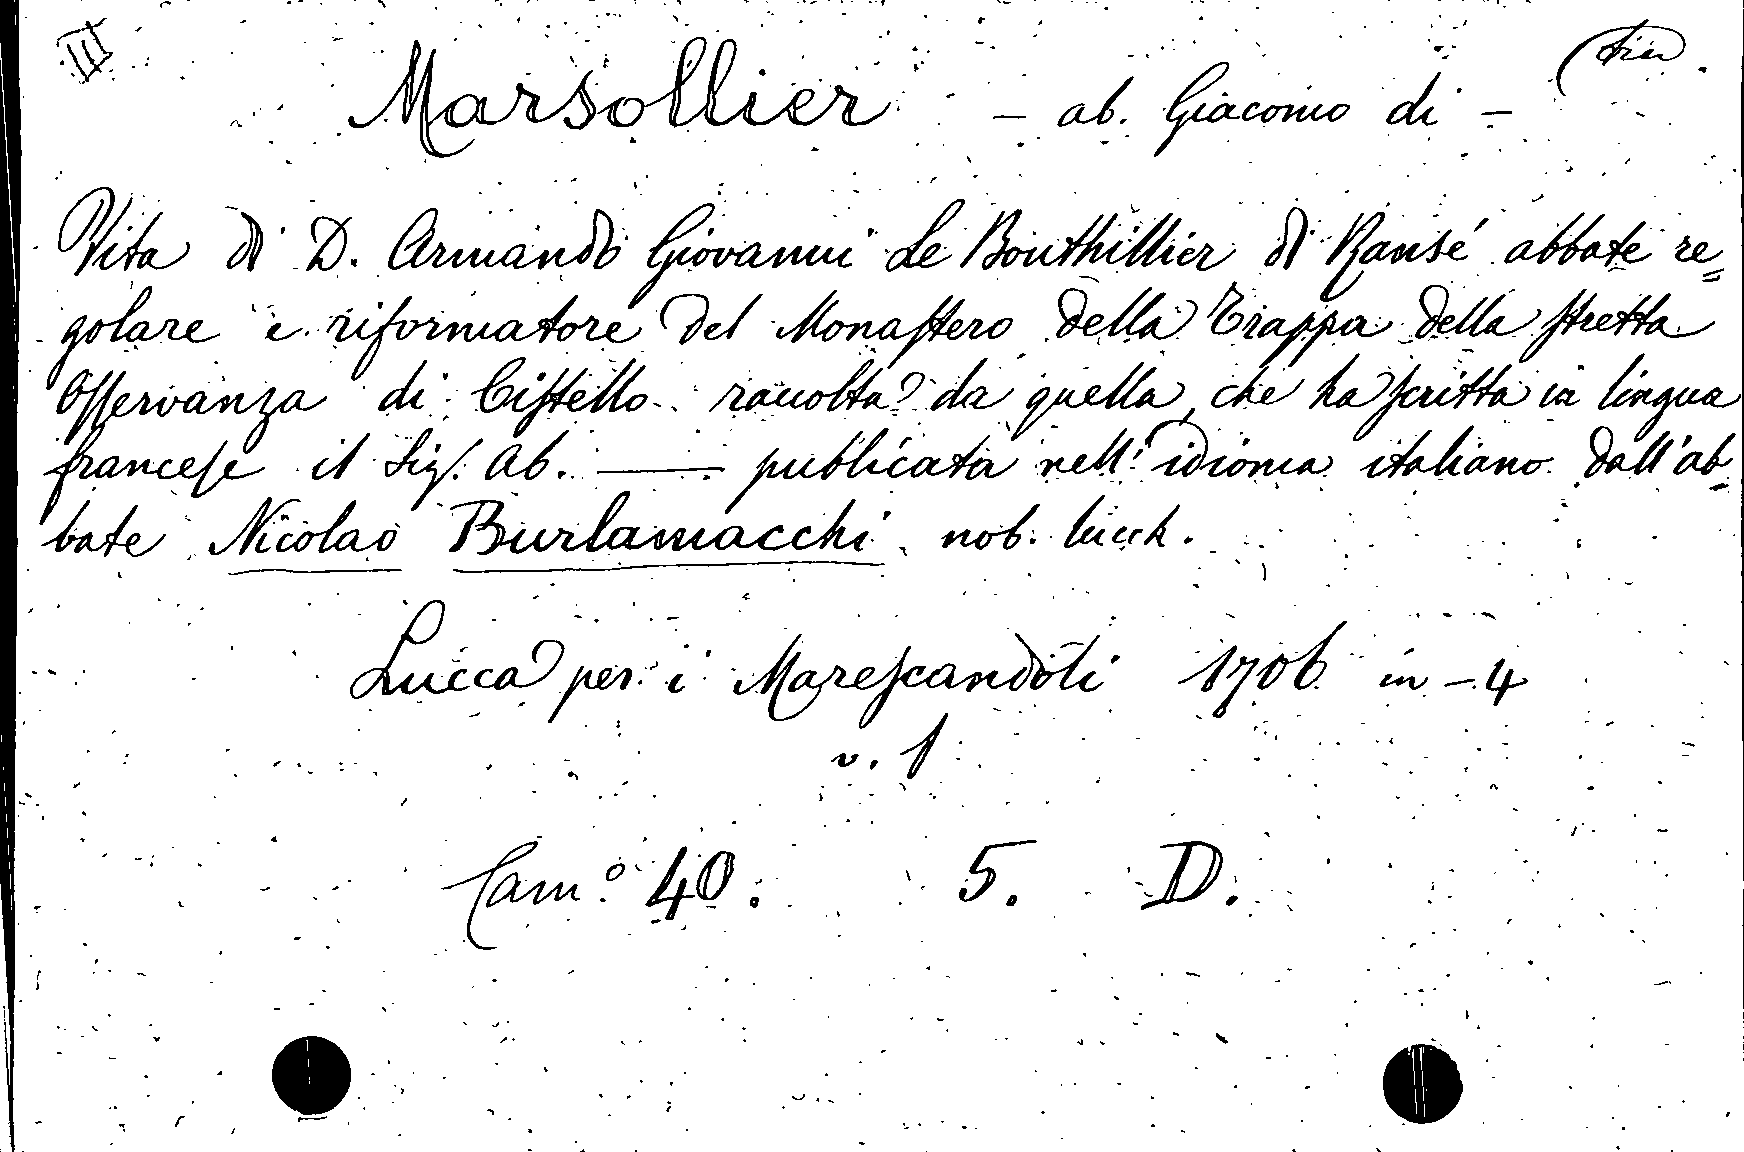 III
Marsollier - ab. Giacomo di -
Vita di D. Armando Giovanni Le Bouthillier di Ransé abbate re=
golare e riformatore del Monastero della Trappa della stretta
Osservanza di Cistello raccolta da quella, che ha scritta in lingua
francese il Sig. Ab. —— publicata nell' idioma italiano dall'ab=
bate Nicolao Burlamacchi nob. lucch.
Lucca per i Marescandoli 1706 in - 4
v. 1
Cam.º 40. 5. D.